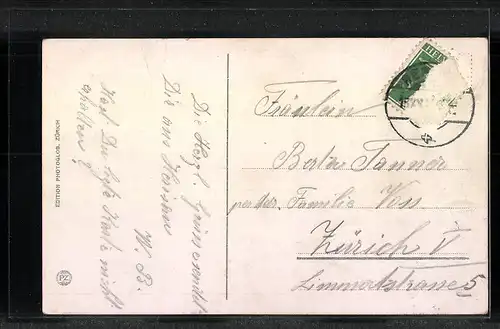 Die Herzl. Grüsse sendet
Dir aus Herisau
W. B.
Hast Du letzte Karte nicht
erhalten?
EDITION PHOTOGLOB, ZÜRICH
PZ
HEL
Fräulein
Berta Tanner
per Adr. Familie Voss
Zürich V
Limmatstrasse 5